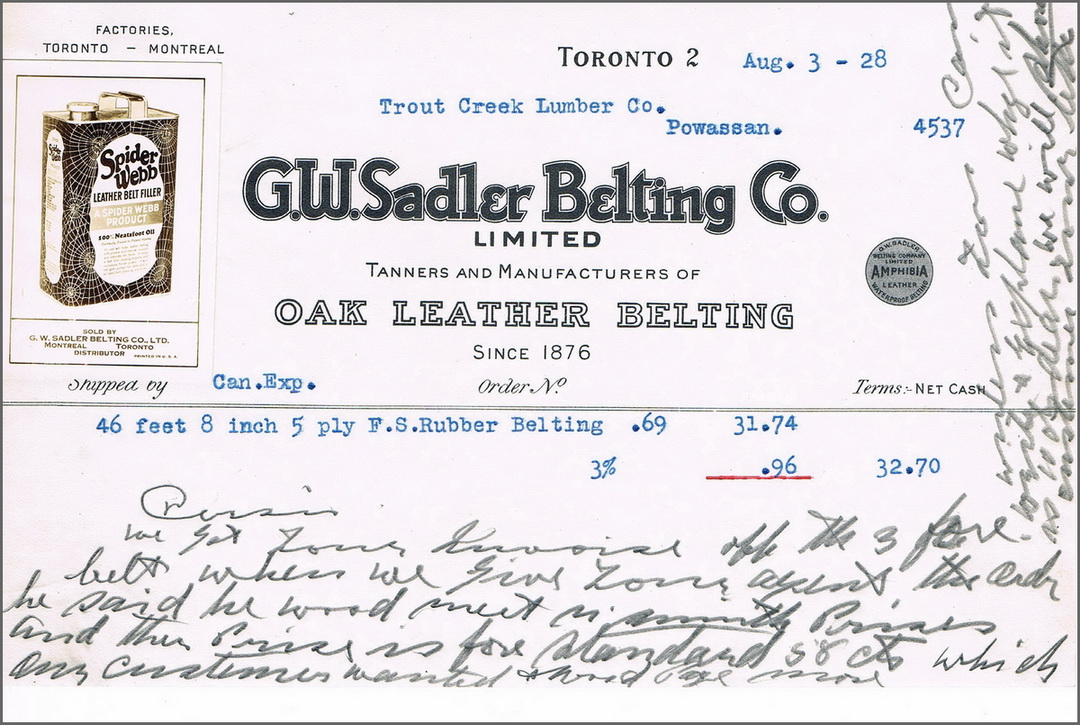 FACTORIES,
TORONTO — MONTREAL
TORONTO 2 Aug. 3 - 28
Trout Creek Lumber Co.
Powassan.
4537
Spider Webb
LEATHER BELT FILLER
A SPIDER WEBB
PRODUCT
100% Neatsfoot Oil
SOLD BY
G. W. SADLER BELTING CO., LTD.
MONTREAL TORONTO
DISTRIBUTOR PRINTED IN U.S.A.
G.W. Sadler Belting Co.
LIMITED
TANNERS AND MANUFACTURERS OF
OAK LEATHER BELTING
SINCE 1876
G.W. SADLER
BELTING COMPANY
LIMITED
AMPHIBIA
LEATHER
WATERPROOF BELTING
Shipped by Can.Exp. Order No. Terms:- NET CASH
46 feet 8 inch 5 ply F.S.Rubber Belting .69 31.74
3% .96 32.70
we got your Invoise off the 3 fore
belt when we give your agent the order
he said he wood meet Prises
and the Prise is fore standard 58 cts which
our customer wanted & wood more